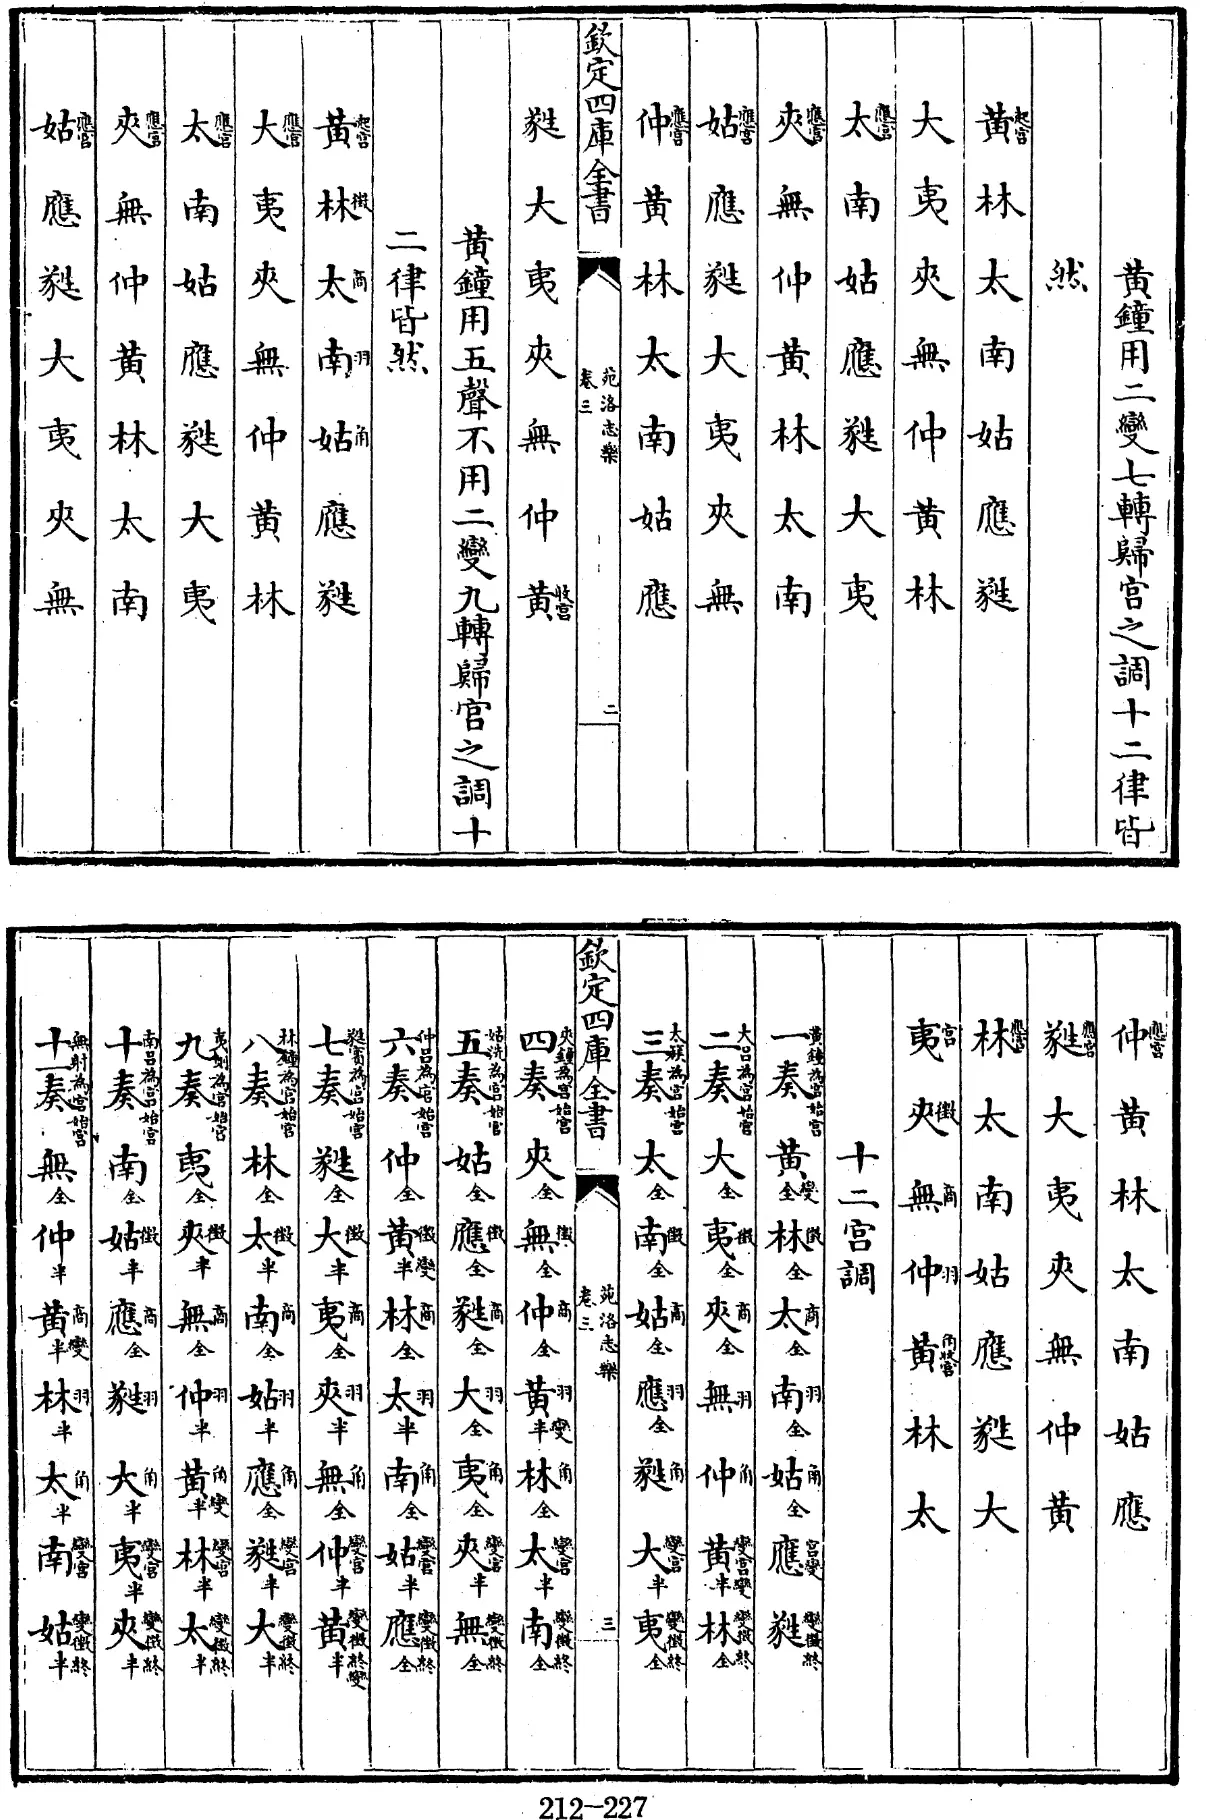 黃鐘用二變七轉歸宮之調十二律皆
然
黃起宮林太南姑應蕤
大夷夾無仲黃林
太應宮南姑應蕤大夷
夾應宮無仲黃林太南
姑應宮應蕤大夷夾無
仲應宮黃林太南姑應
欽定四庫全書
苑洛志樂
卷三
二
蕤大夷夾無仲黃收宮
黃鐘用五聲不用二變九轉歸宮之調十
二律皆然
黃起宮林徵太商南羽姑角應蕤
大應宮夷夾無仲黃林
太應宮南姑應蕤大夷
夾應宮無仲黃林太南
姑應宮應蕤大夷夾無
仲應宮黃林太南姑應
蕤應宮大夷夾無仲黃
林應宮太南姑應蕤大
夷宮夾徵無商仲羽黃角收宮林太
十二宮調
一奏黃鐘為宮始宮黃全變林徵全太商全南羽全姑角全應宮變蕤變徵終
二奏大呂為宮始宮大全夷徵全夾商全無羽仲角黃變宮變半林變徵終全
三奏太簇為宮始宮太全南徵全姑商全應羽全蕤角大變宮半夷變徵終全
欽定四庫全書
苑洛志樂
卷三
三
四奏夾鐘為宮始宮夾全無徵全仲商全黃羽變半林角全太變宮半南變徵終全
五奏姑洗為宮始宮姑全應徵全蕤商全大羽全夷角全夾變宮半無變徵終全
六奏仲呂為宮始宮仲全黃徵變半林商全太羽半南角全姑變宮半應變徵終全
七奏蕤賓為宮始宮蕤全大徵半夷商全夾羽半無角全仲變宮半黃變徵終變半
八奏林鐘為宮始宮林全太徵半南商全姑羽半應角全蕤變宮半大變徵終半
九奏夷則為宮始宮夷全夾徵半無商全仲羽半黃角變半林變宮半太變徵終半
十奏南呂為宮始宮南全姑徵半應商全蕤羽大角半夷變宮半夾變徵終半
十一奏無射為宮始宮無全仲半黃商變半林羽半太角半南變宮姑變徵終半
212-227